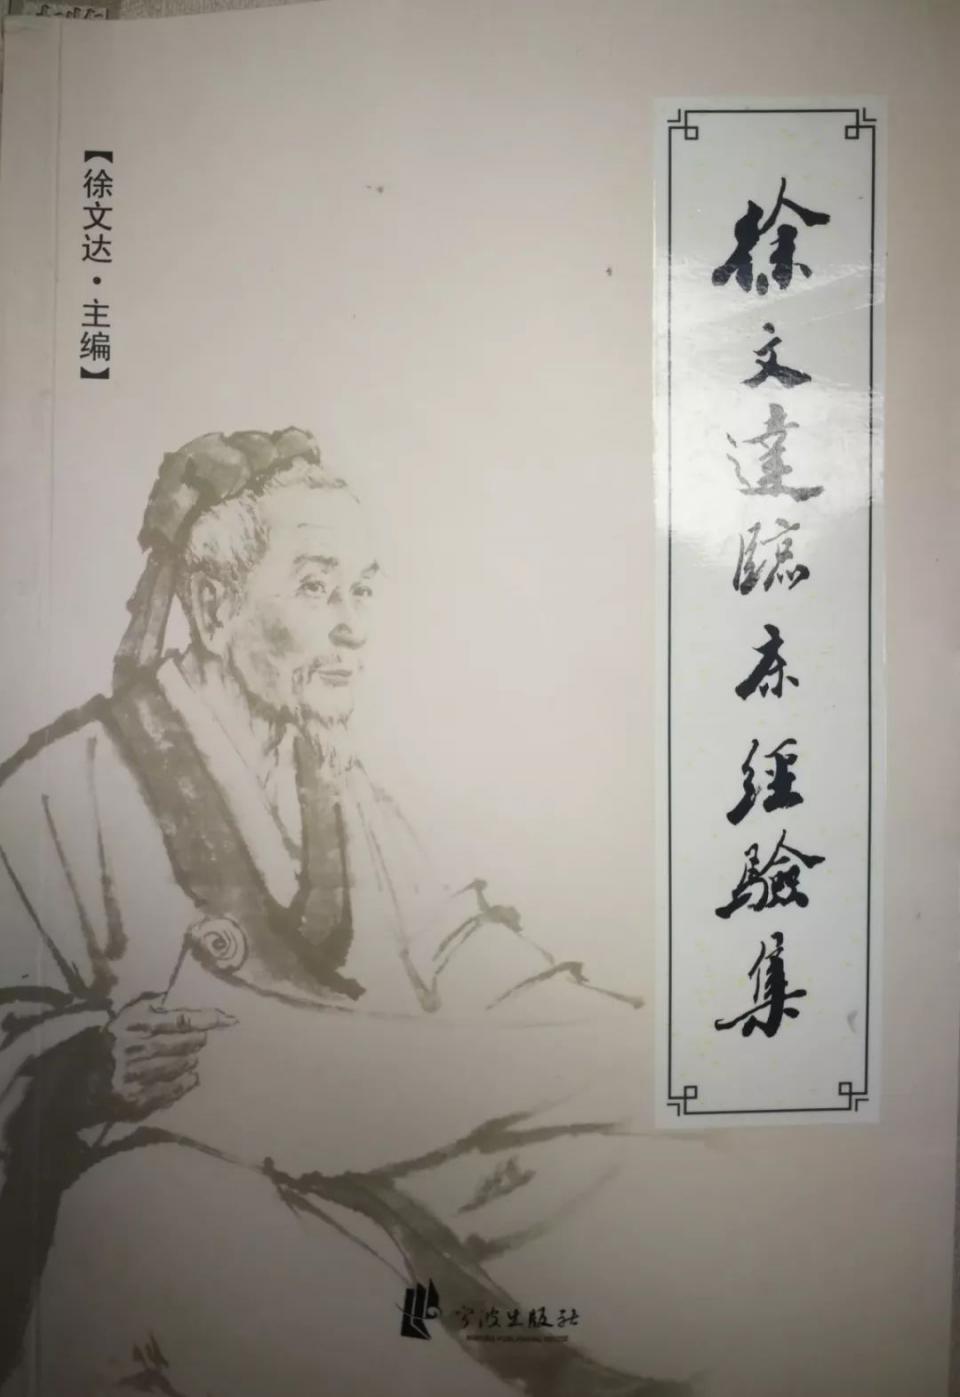 徐文達臨床經驗集
【徐文达·主编】
宁波出版社
NINGBO PUBLISHING HOUSE